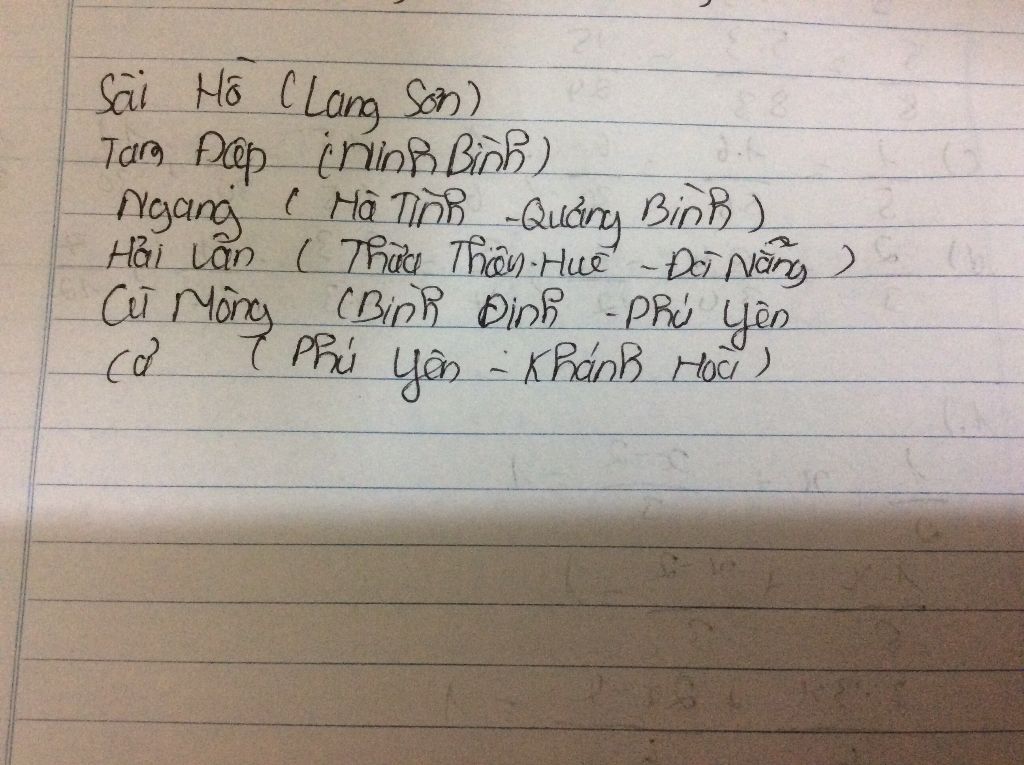 Sài Hồ (Lang Sơn)
Tam Điệp (Ninh Bình)
Ngang ( Hà Tình - Quảng Bình )
Hải Vân ( Thừa Thiên-Huế - Đà Nẵng )
Cù Mông (Bình Định - Phú Yên
Cả ( Phú Yên - Khánh Hoà )